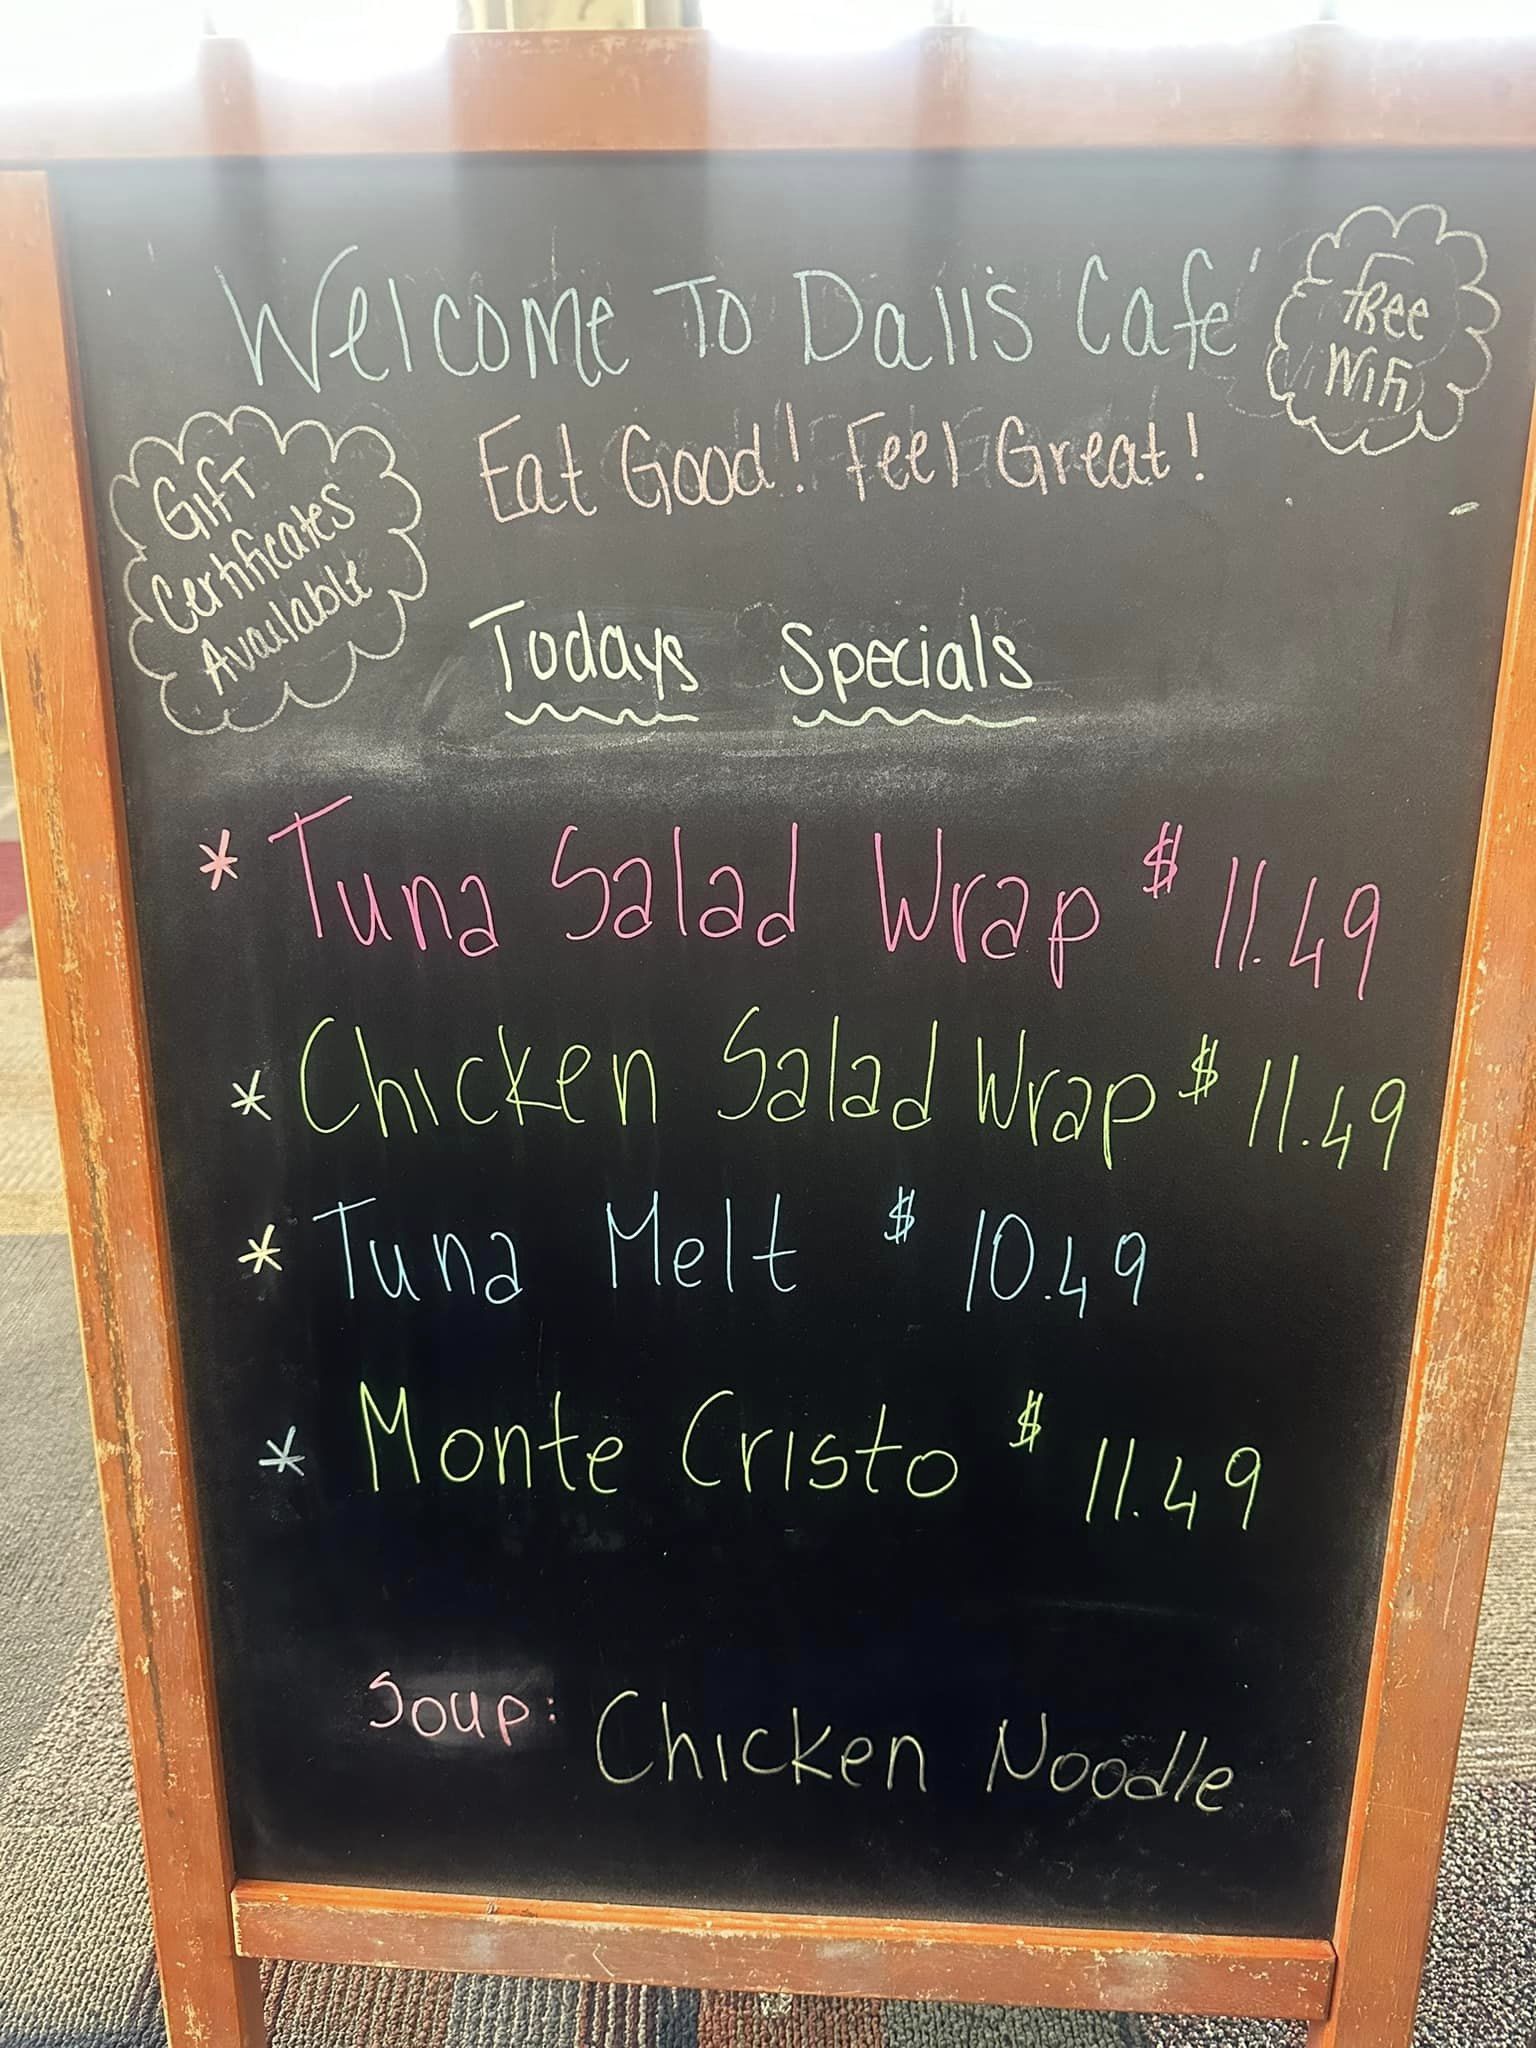 Welcome To Dalls Cafe'
Free
Wifi
Eat Good! Feel Great!
Gift
Certificates
Available
Todays Specials
* Tuna Salad Wrap $ 11.49
* Chicken Salad Wrap $ 11.49
* Tuna Melt $ 10.49
* Monte Cristo $ 11.49
Soup: Chicken Noodle